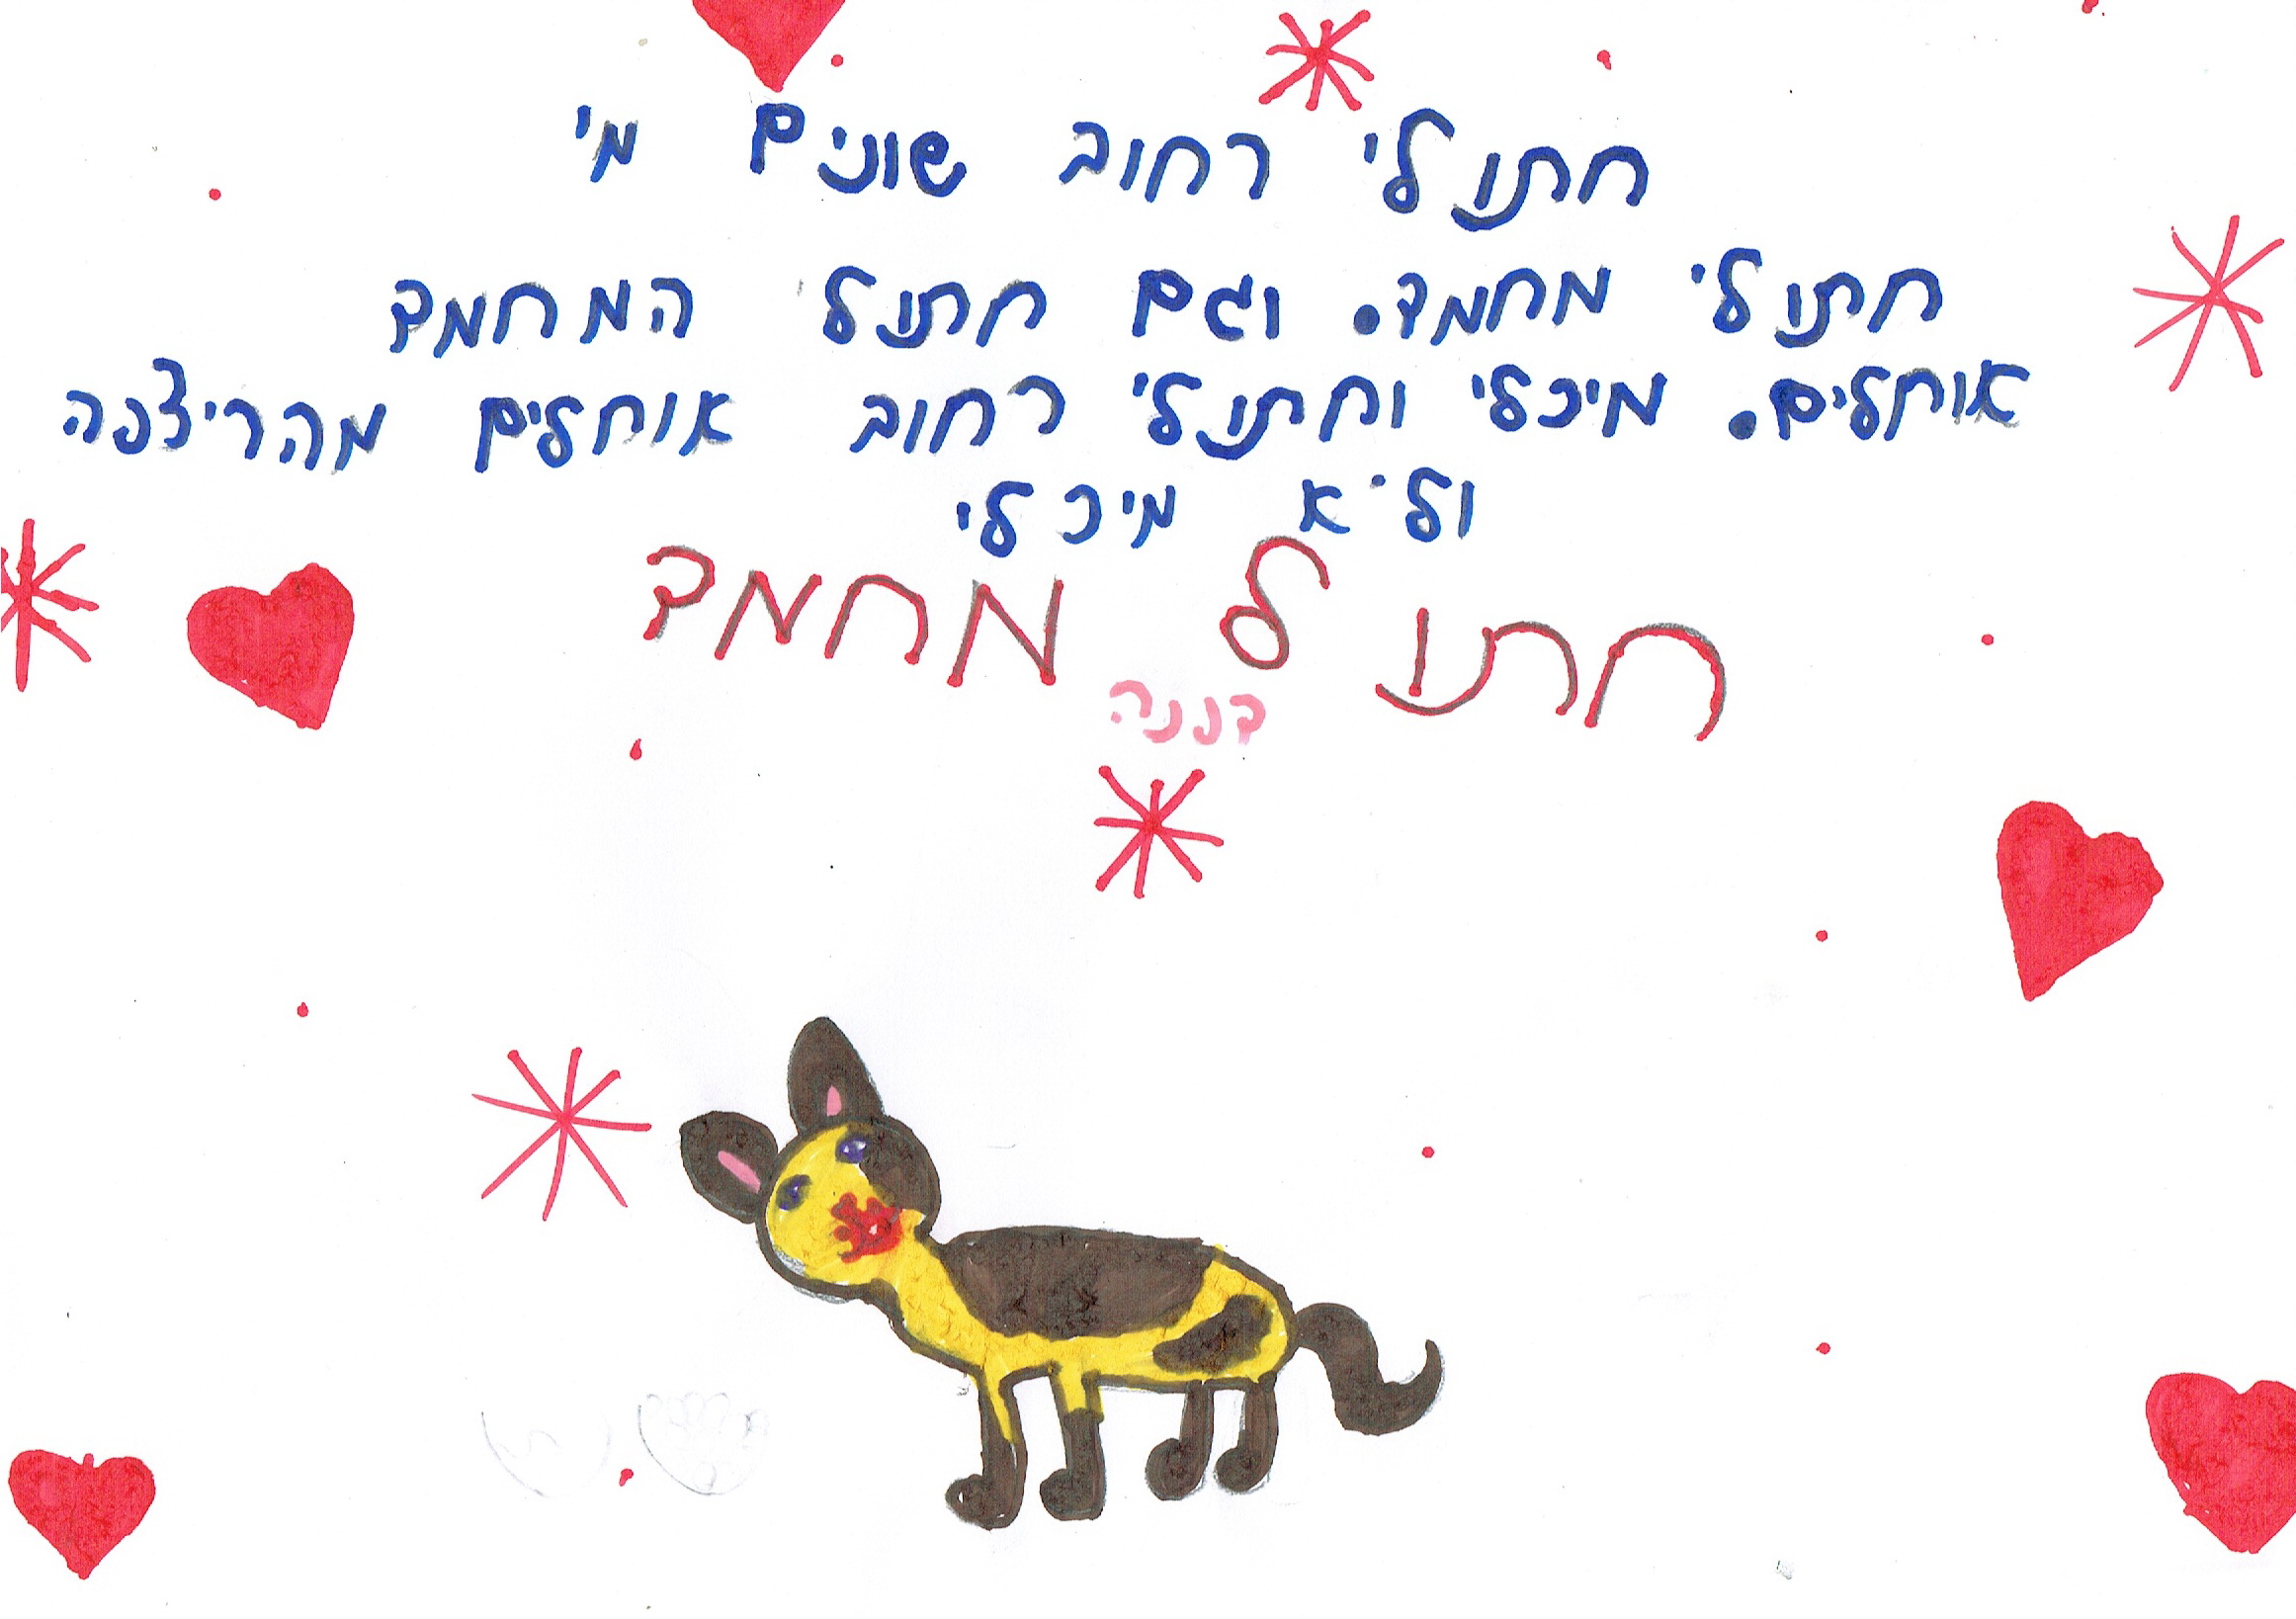 חתולי רחוב שונים מי
חתולי מחמד. וגם חתול המחמד
אוחלים. מיכלי וחתולי רחוב אוחלים מהריצפה
ולא מיכלי
חתול מחמד
בננה